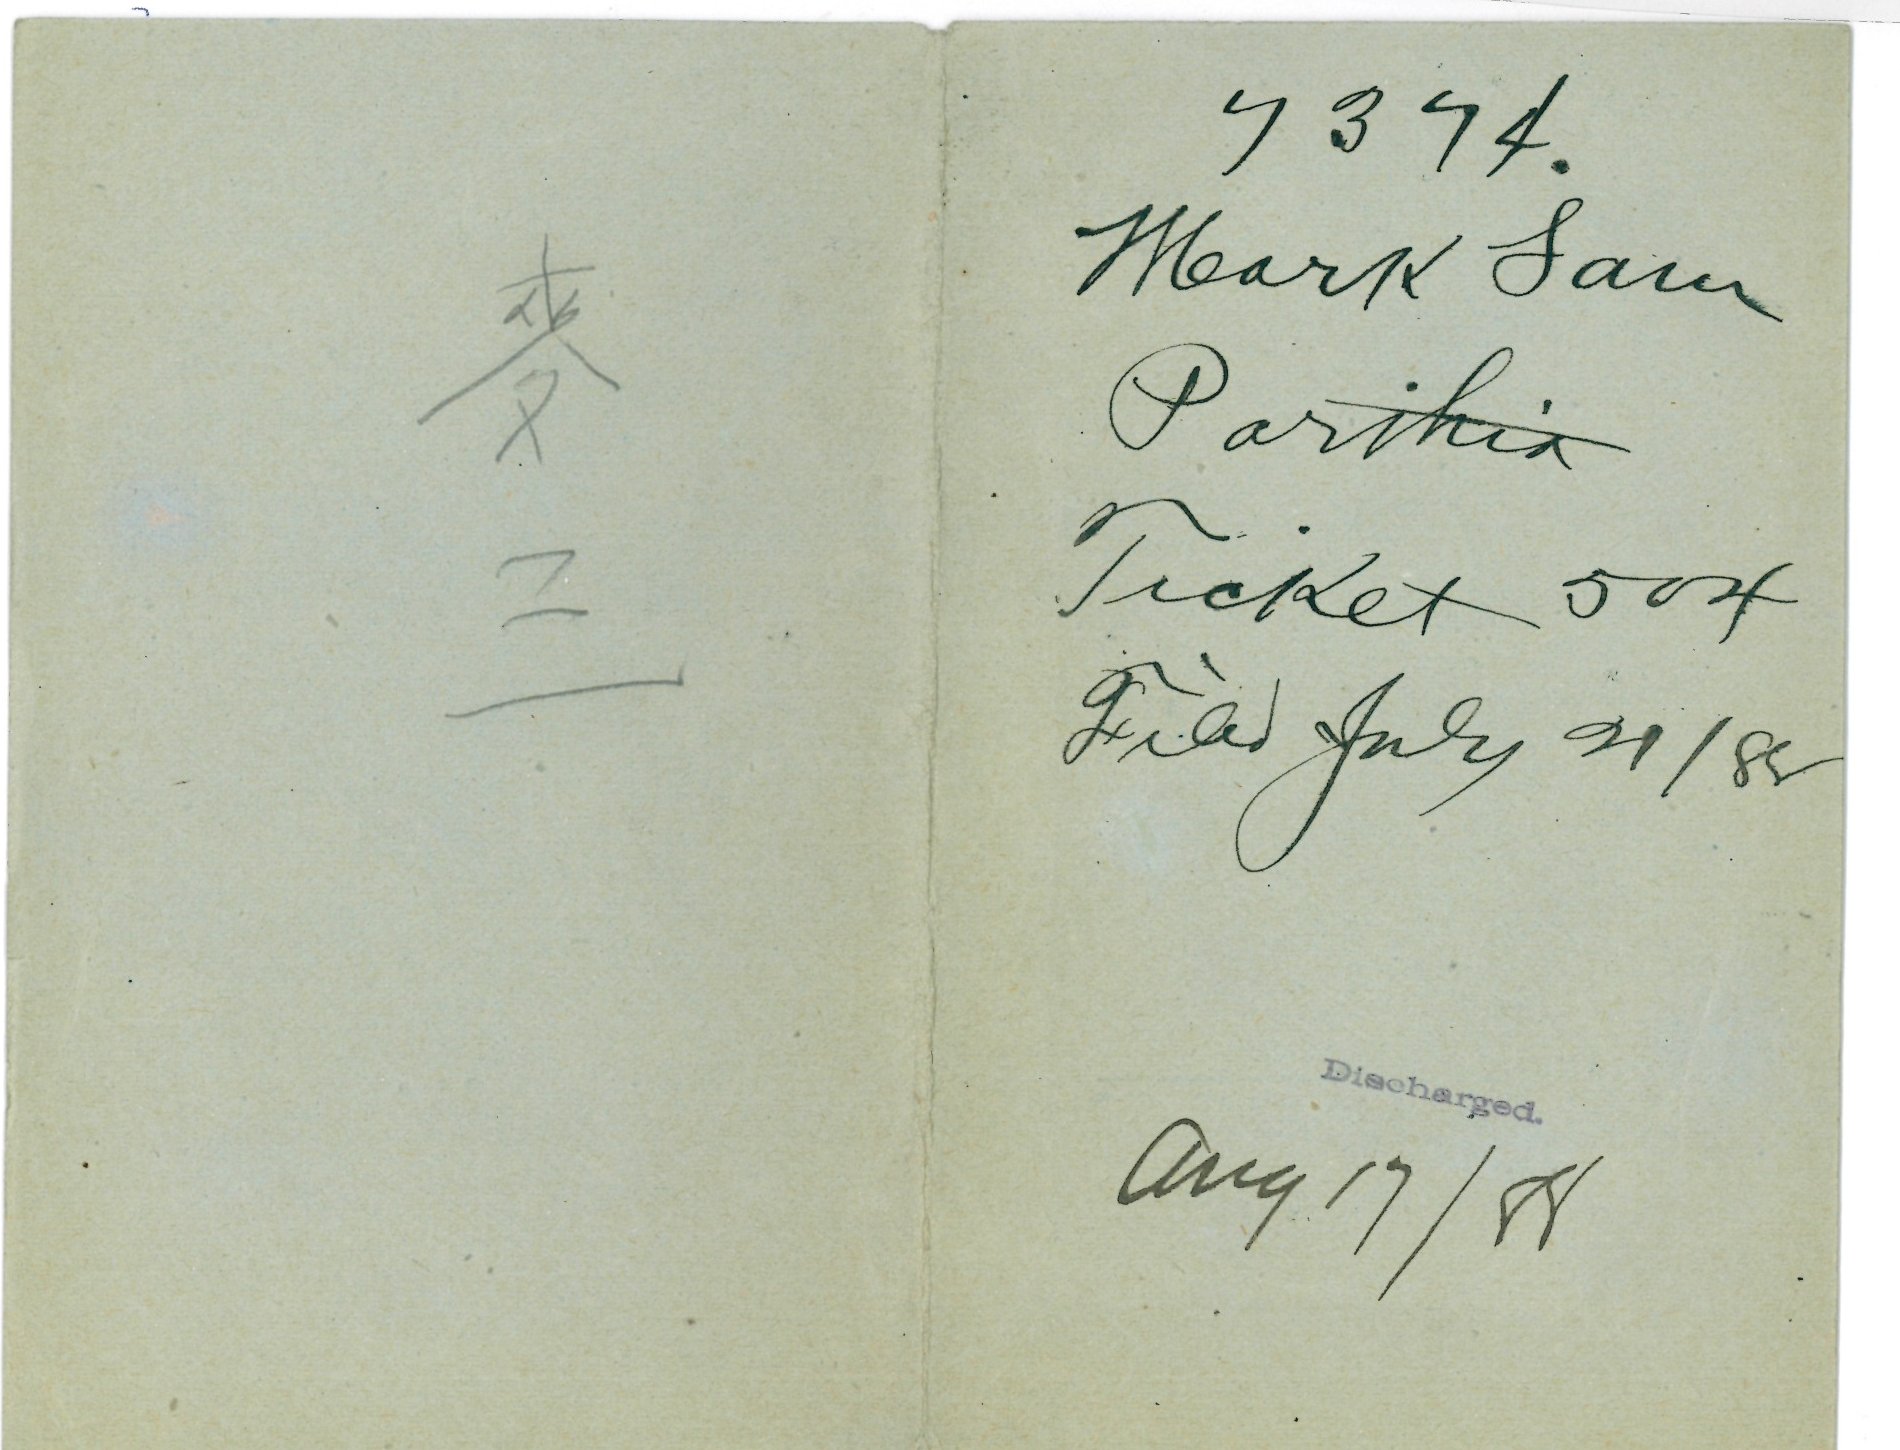 麥
三
7374.
Mark Sam
Parthia
Ticket 504
Filed July 21/88
Discharged.
Aug 17/88